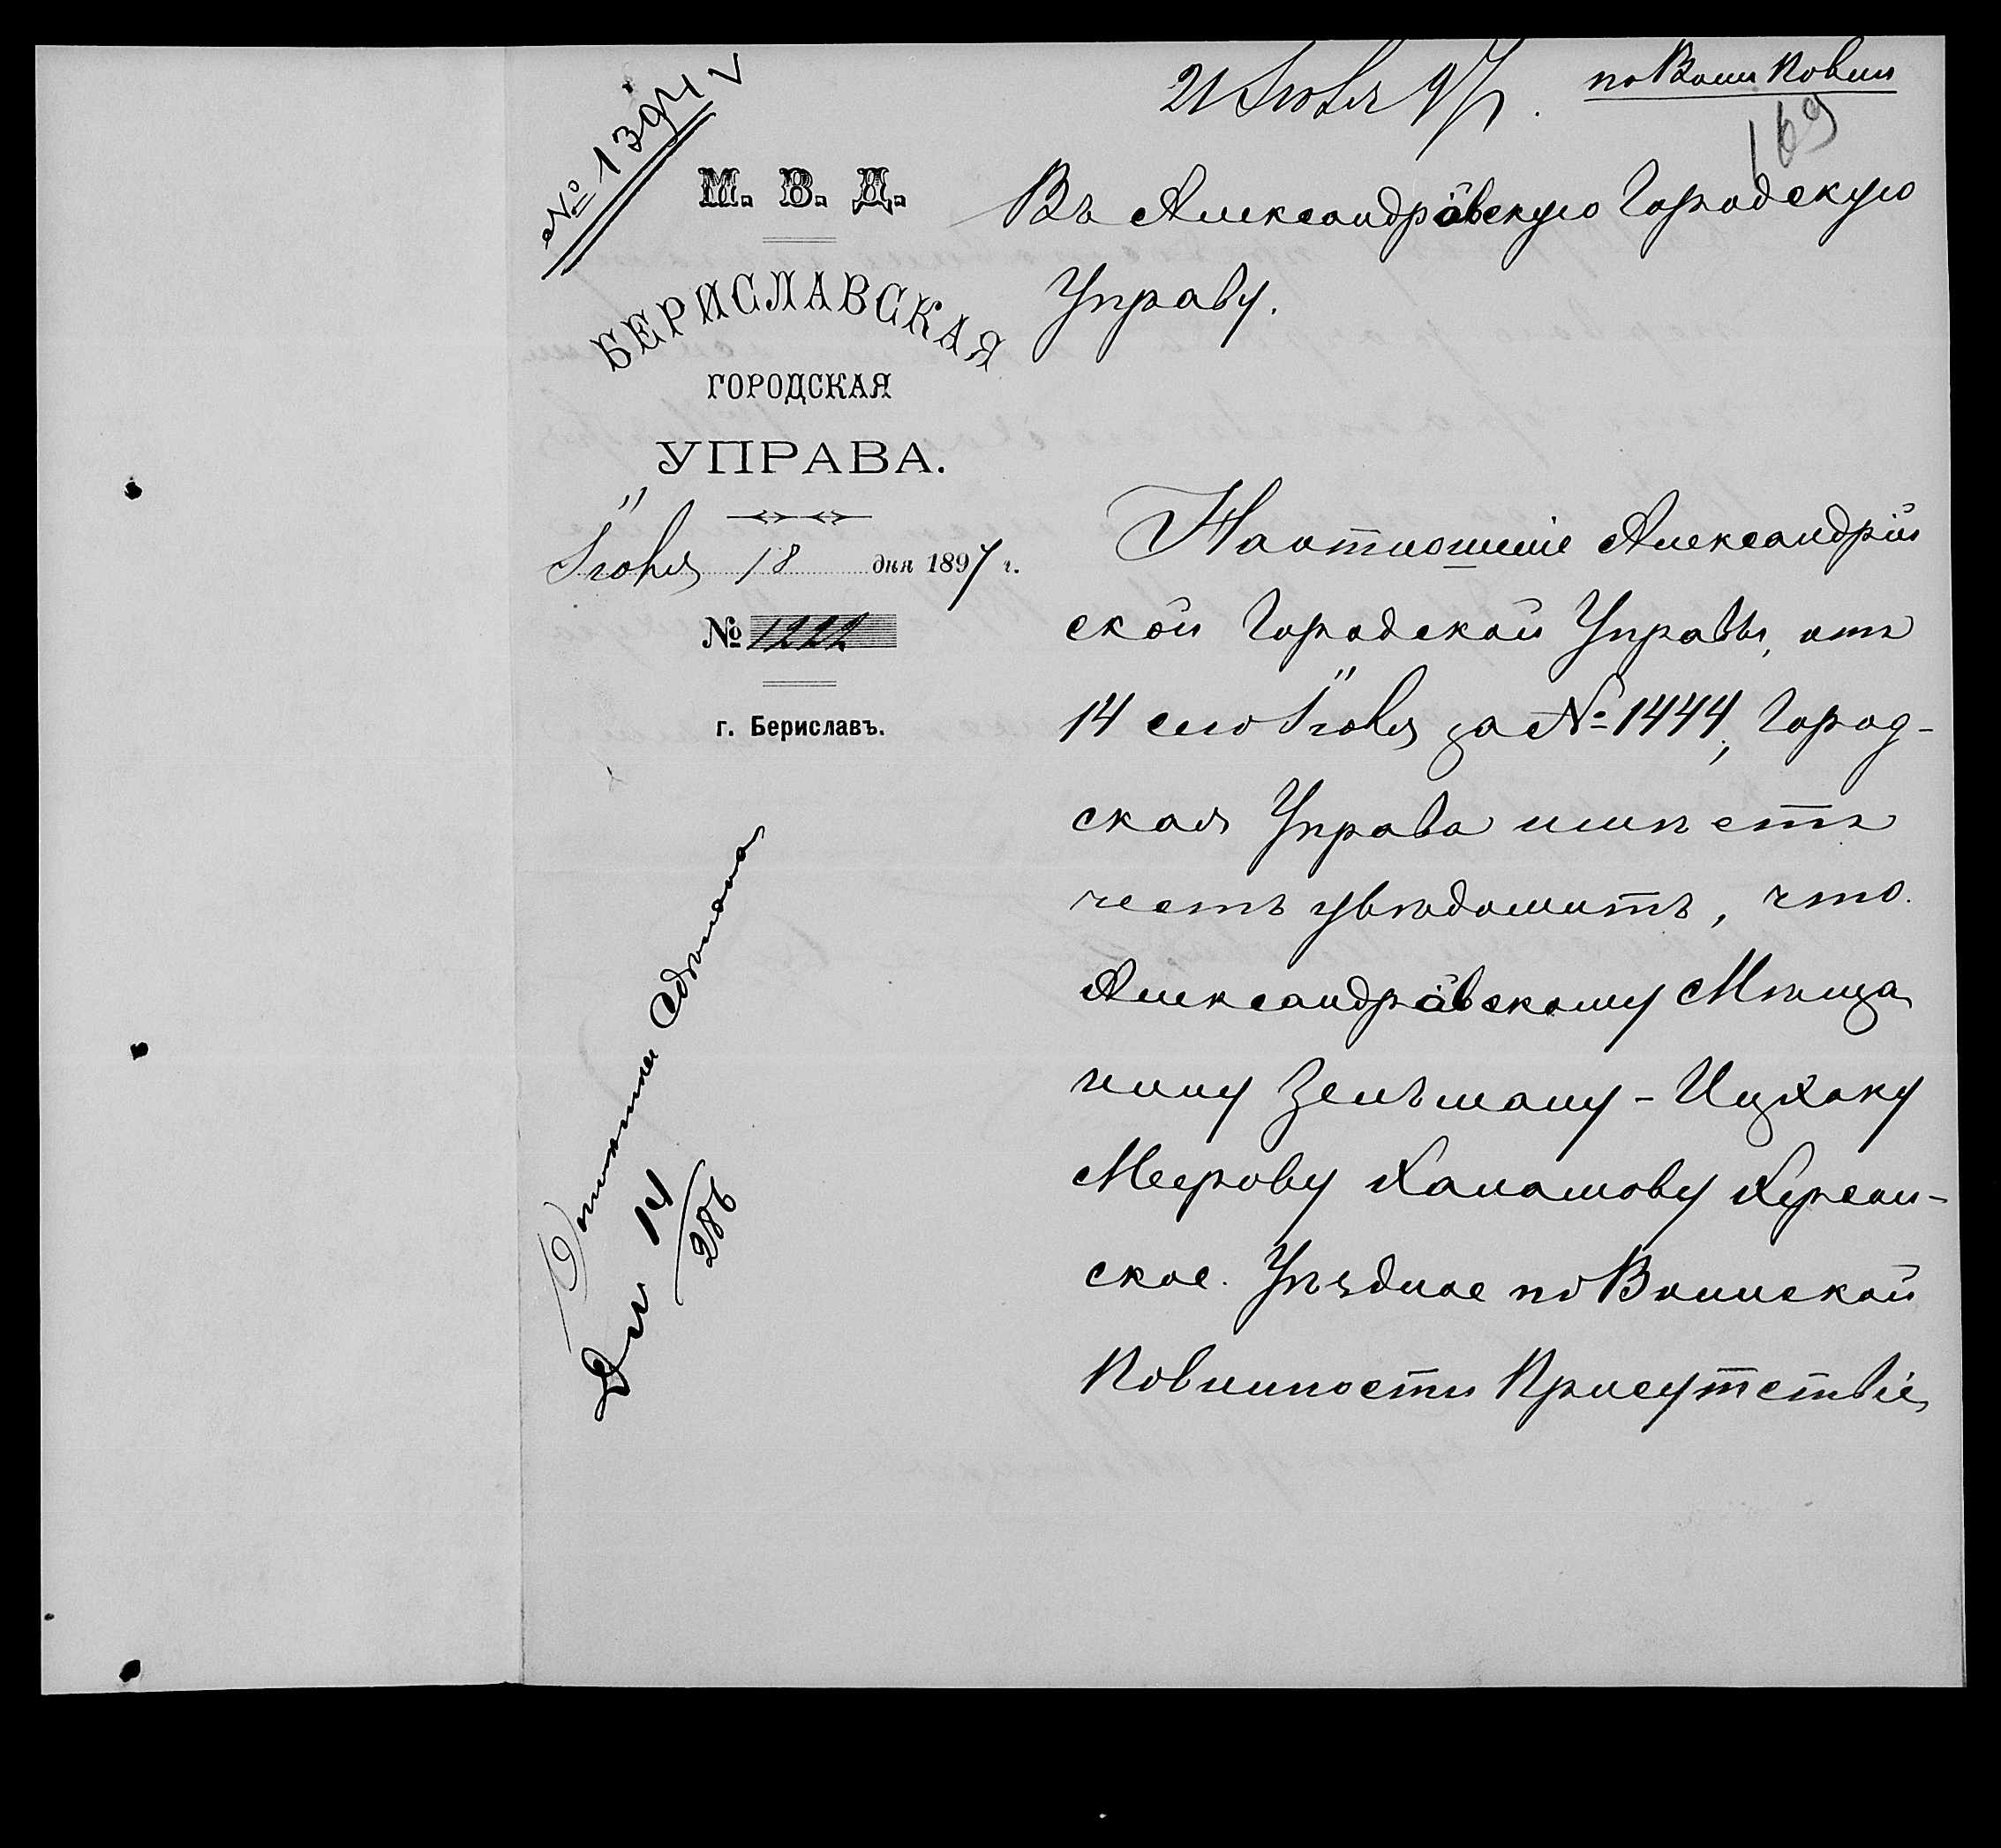 № 1394
21 Іюля 97.
по Воин Повин
169
М. В. Д.
БЕРИСЛАВСКАЯ
ГОРОДСКАЯ
УПРАВА.
Іюля 18 дня 1897 г.
№ 1222
г. Бериславъ.
Въ Александровскую Городскую
Управу.
На отношеніе Александрій
ской Городской Управы, отъ
14 сего Іюля за № 1444, Город-
ская Управа имѣетъ
честь увѣдомить, что
Александровскому Мѣща
нину Зельману-Ицхоку
Меерову Халамову Херсон-
ское Уѣздное по Воинской
Повинности Присутствіе
14
286